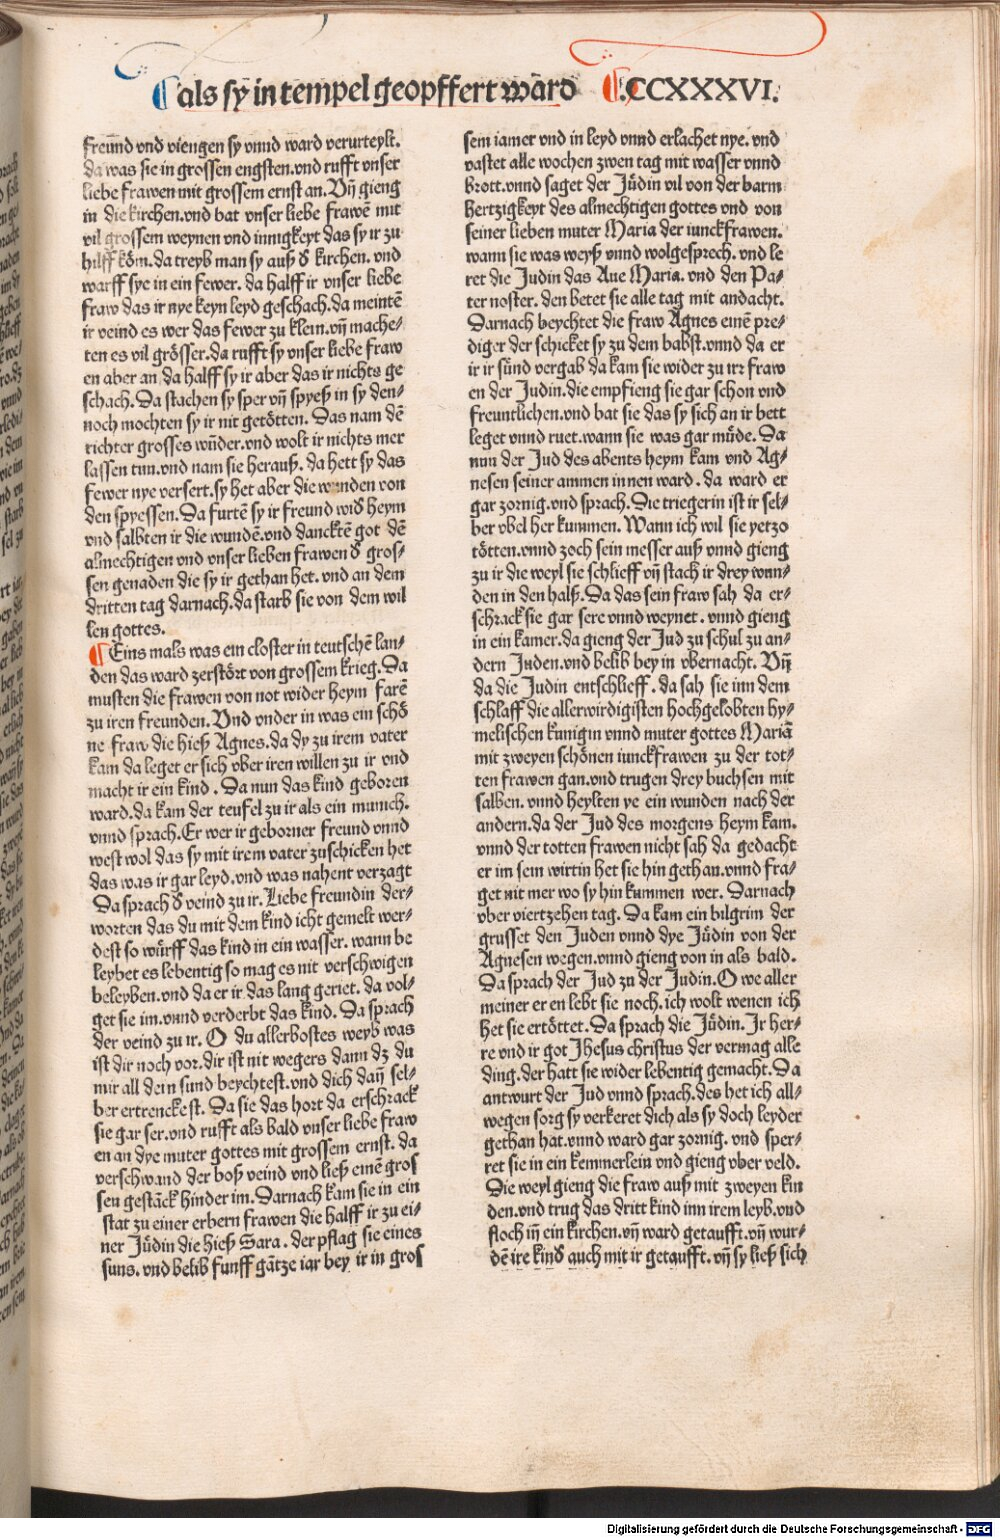 als sy in tempel geopffert wārd .CCXXXVI.
freūnd vnd viengen sy vnnd ward verurteylt.
da was sie in grossen engsten.vnd rufft vnser
liebe frawen mit grossem ernst an. Vñ gieng
in die kirchen.vnd bat vnser liebe frawē mit
vil grossem weynen vnd innigkeyt das sy ir zu
hilff köm.da treyb man sy auß d̕ kirchen. vnd
warff sye in ein fewer. da halff ir vnser liebe
fraw das ir nye keyn leyd geschach.da meintē
ir veind es wer das fewer zu klein.vñ mache⸗
ten es vil grösser.da rufft sy vnser liebe fraw
en aber an da halff sy ir aber das ir nichts ge
schach. Da stachen sy sper vñ spyeß in sy den⸗
noch mochten sy ir nit getötten. Das nam dē
richter grosses wūder.vnd wolt ir nichts mer
lassen tun.vnd nam sie herauß. da hett sy das
fewer nye versert.sy het aber die wunden von
den spyessen. Da furtē sy ir freund wid̕ heym
vnd salbten ir die wundē.vnd dancktē got dē
almechtigen vnd vnser lieben frawen d̕ gros⸗
sen genaden die sy ir gethan het. vnd an dem
dritten tag darnach.da starb sie von dem wil
len gottes.
Eins mals was ein closter in teutschē lan⸗
den das ward zerstört von grossem krieg. Da
musten die frawen von not wider heym farē
zu iren freunden. Vnd vnder in was ein schö
ne fraw die hieß Agnes.da dy zu irem vater
kam da leget er sich vber iren willen zu ir vnd
macht ir ein kind. Da nun das kind geboren
ward.da kam der teufel zu ir als ein munich.
vnnd sprach.Er wer ir geborner freund vnnd
west wol das sy mit irem vater zuschicken het
das was ir gar leyd.vnd was nahent verzagt
Da sprach d̕ veind zu ir. Liebe freundin der⸗
worten das du mit dem kind icht gemelt wer⸗
dest so würff das kind in ein wasser. wann be
leybet es lebentig so mag es nit verschwigen
beleyben.vnd da er ir das lang geriet. da vol⸗
get sie im.vnnd verderbt das kind. Da sprach
der veind zu ir. O du allerbostes weyb was
ist dir noch vor.dir ist nit wegers dann dz du
mir all dein sund beychtest.vnd dich dañ sel⸗
ber ertrenckest. Da sie das hort da erschrack
sie gar ser.vnd rufft als bald vnser liebe fraw
en an dye muter gottes mit grossem ernst. da
verschwand der boß veind vnd ließ einē gros
sen gestāck hinder im. Darnach kam sie in ein
stat zu einer erbern frawen die halff ir zu ei⸗
ner Jüdin die hieß Sara. der pflag sie eines
suns. vnd belib funff gātze iar bey ir in gros
sem iamer vnd in leyd vnnd erlachet nye. vnd
vastet alle wochen zwen tag mit wasser vnnd
brott.vnnd saget der Jüdin vil von der barm
hertzigkeyt des almechtigen gottes vnd von
seiner lieben muter Maria der iunckfrawen.
wann sie was weyß vnnd wolgesprech. vnd le
ret die Judin das Aue Maria. vnd den Pa⸗
ter noster. den betet sie alle tag mit andacht.
Darnach beychtet die fraw Agnes einē pre⸗
diger der schicket sy zu dem babst.vnnd da er
ir ir sünd vergab da kam sie wider zu irr fraw
en der Judin.die empfieng sie gar schon vnd
freuntlichen.vnd bat sie das sy sich an ir bett
leget vnnd ruet.wann sie was gar müde. Da
nun der Jud des abents heym kam vnd Ag⸗
nesen seiner ammen innen ward. da ward er
gar zornig.vnd sprach. Die triegerin ist ir sel⸗
ber vbel her kummen. Wann ich wil sie yetzo
tötten.vnnd zoch sein messer auß vnnd gieng
zu ir die weyl sie schlieff vñ stach ir drey wun⸗
den in den halß. Da das sein fraw sah da er⸗
schrack sie gar sere vnnd weynet. vnnd gieng
in ein kamer.da gieng der Jud zu schul zu an⸗
dern Juden.vnd belib bey in vbernacht. Vñ
da die Judin entschlieff. da sah sie inn dem
schlaff die allerwirdigisten hochgelobten hy⸗
melischen kunigin vnnd muter gottes Mariā
mit zweyen schönen iunckfrawen zu der tot⸗
ten frawen gan.vnd trugen drey buchsen mit
salben. vnnd heylten ye ein wunden nach der
andern.da der Jud des morgens heym kam.
vnnd der totten frawen nicht sah da gedacht
er im sem wirtin het sie hin gethan.vnnd fra⸗
get nit mer wo sy hin kummen wer. Darnach
vber viertzehen tag. Da kam ein bilgrim der
grusset den Juden vnnd dye Jüdin von der
Agnesen wegen.vnnd gieng von in als bald.
Da sprach der Jud zu der Judin. O we aller
meiner er en lebt sie noch. ich wolt wenen ich
het sie ertöttet. Da sprach die Jüdin. Ir her⸗
re vnd ir got Jhesus christus der vermag alle
ding.der hatt sie wider lebentig gemacht. Da
antwurt der Jud vnnd sprach.des het ich all⸗
wegen sorg sy verkeret dich als sy doch leyder
gethan hat.vnnd ward gar zornig. vnd sper⸗
ret sie in ein kemmerlein vnd gieng vber veld.
Die weyl gieng die fraw auß mit zweyen kin
den.vnd trug das dritt kind inn irem leyb.vnd
floch iñ ein kirchen.vñ ward getaufft.vñ wur⸗
dē ire kind auch mit ir getaufft. vñ sy ließ sich
Digitalisierung gefördert durch die Deutsche Forschungsgemeinschaft - DFG